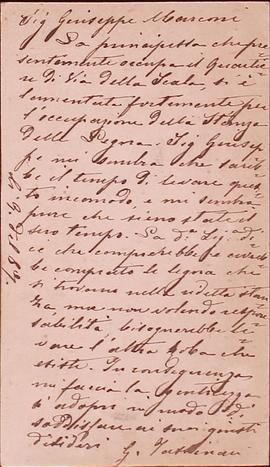 Sig Giuseppe Marconi
La principessa che pre
sentemente occupa il quartie
re di Via della Scala, si è
lamentata fortemente per
l'occupazione della stanza
della legna. Sig Giusep
pe mi sembra che sareb
be il tempo di levare ques
to incomodo, e mi sembra
pure che sieno state il
tempo. La di
ce che comprerebbe e avreb
be comprato le legna che
si trovano nella detta stan
za ma non volendo respon
sabilità bisognerebbe le
vare l'altra roba che
esiste. In conseguenza
mi faccia la gentilezza
s'adopri in modo di
soddisfare ai suoi giusti
desideri
G.